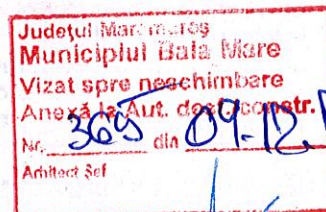 Județul Maramureș
Municipiul Baia Mare
Vizat spre neschimbare
Anexă la Aut. de constr.
Nr. 365 din 09.12.
Arhitect Șef